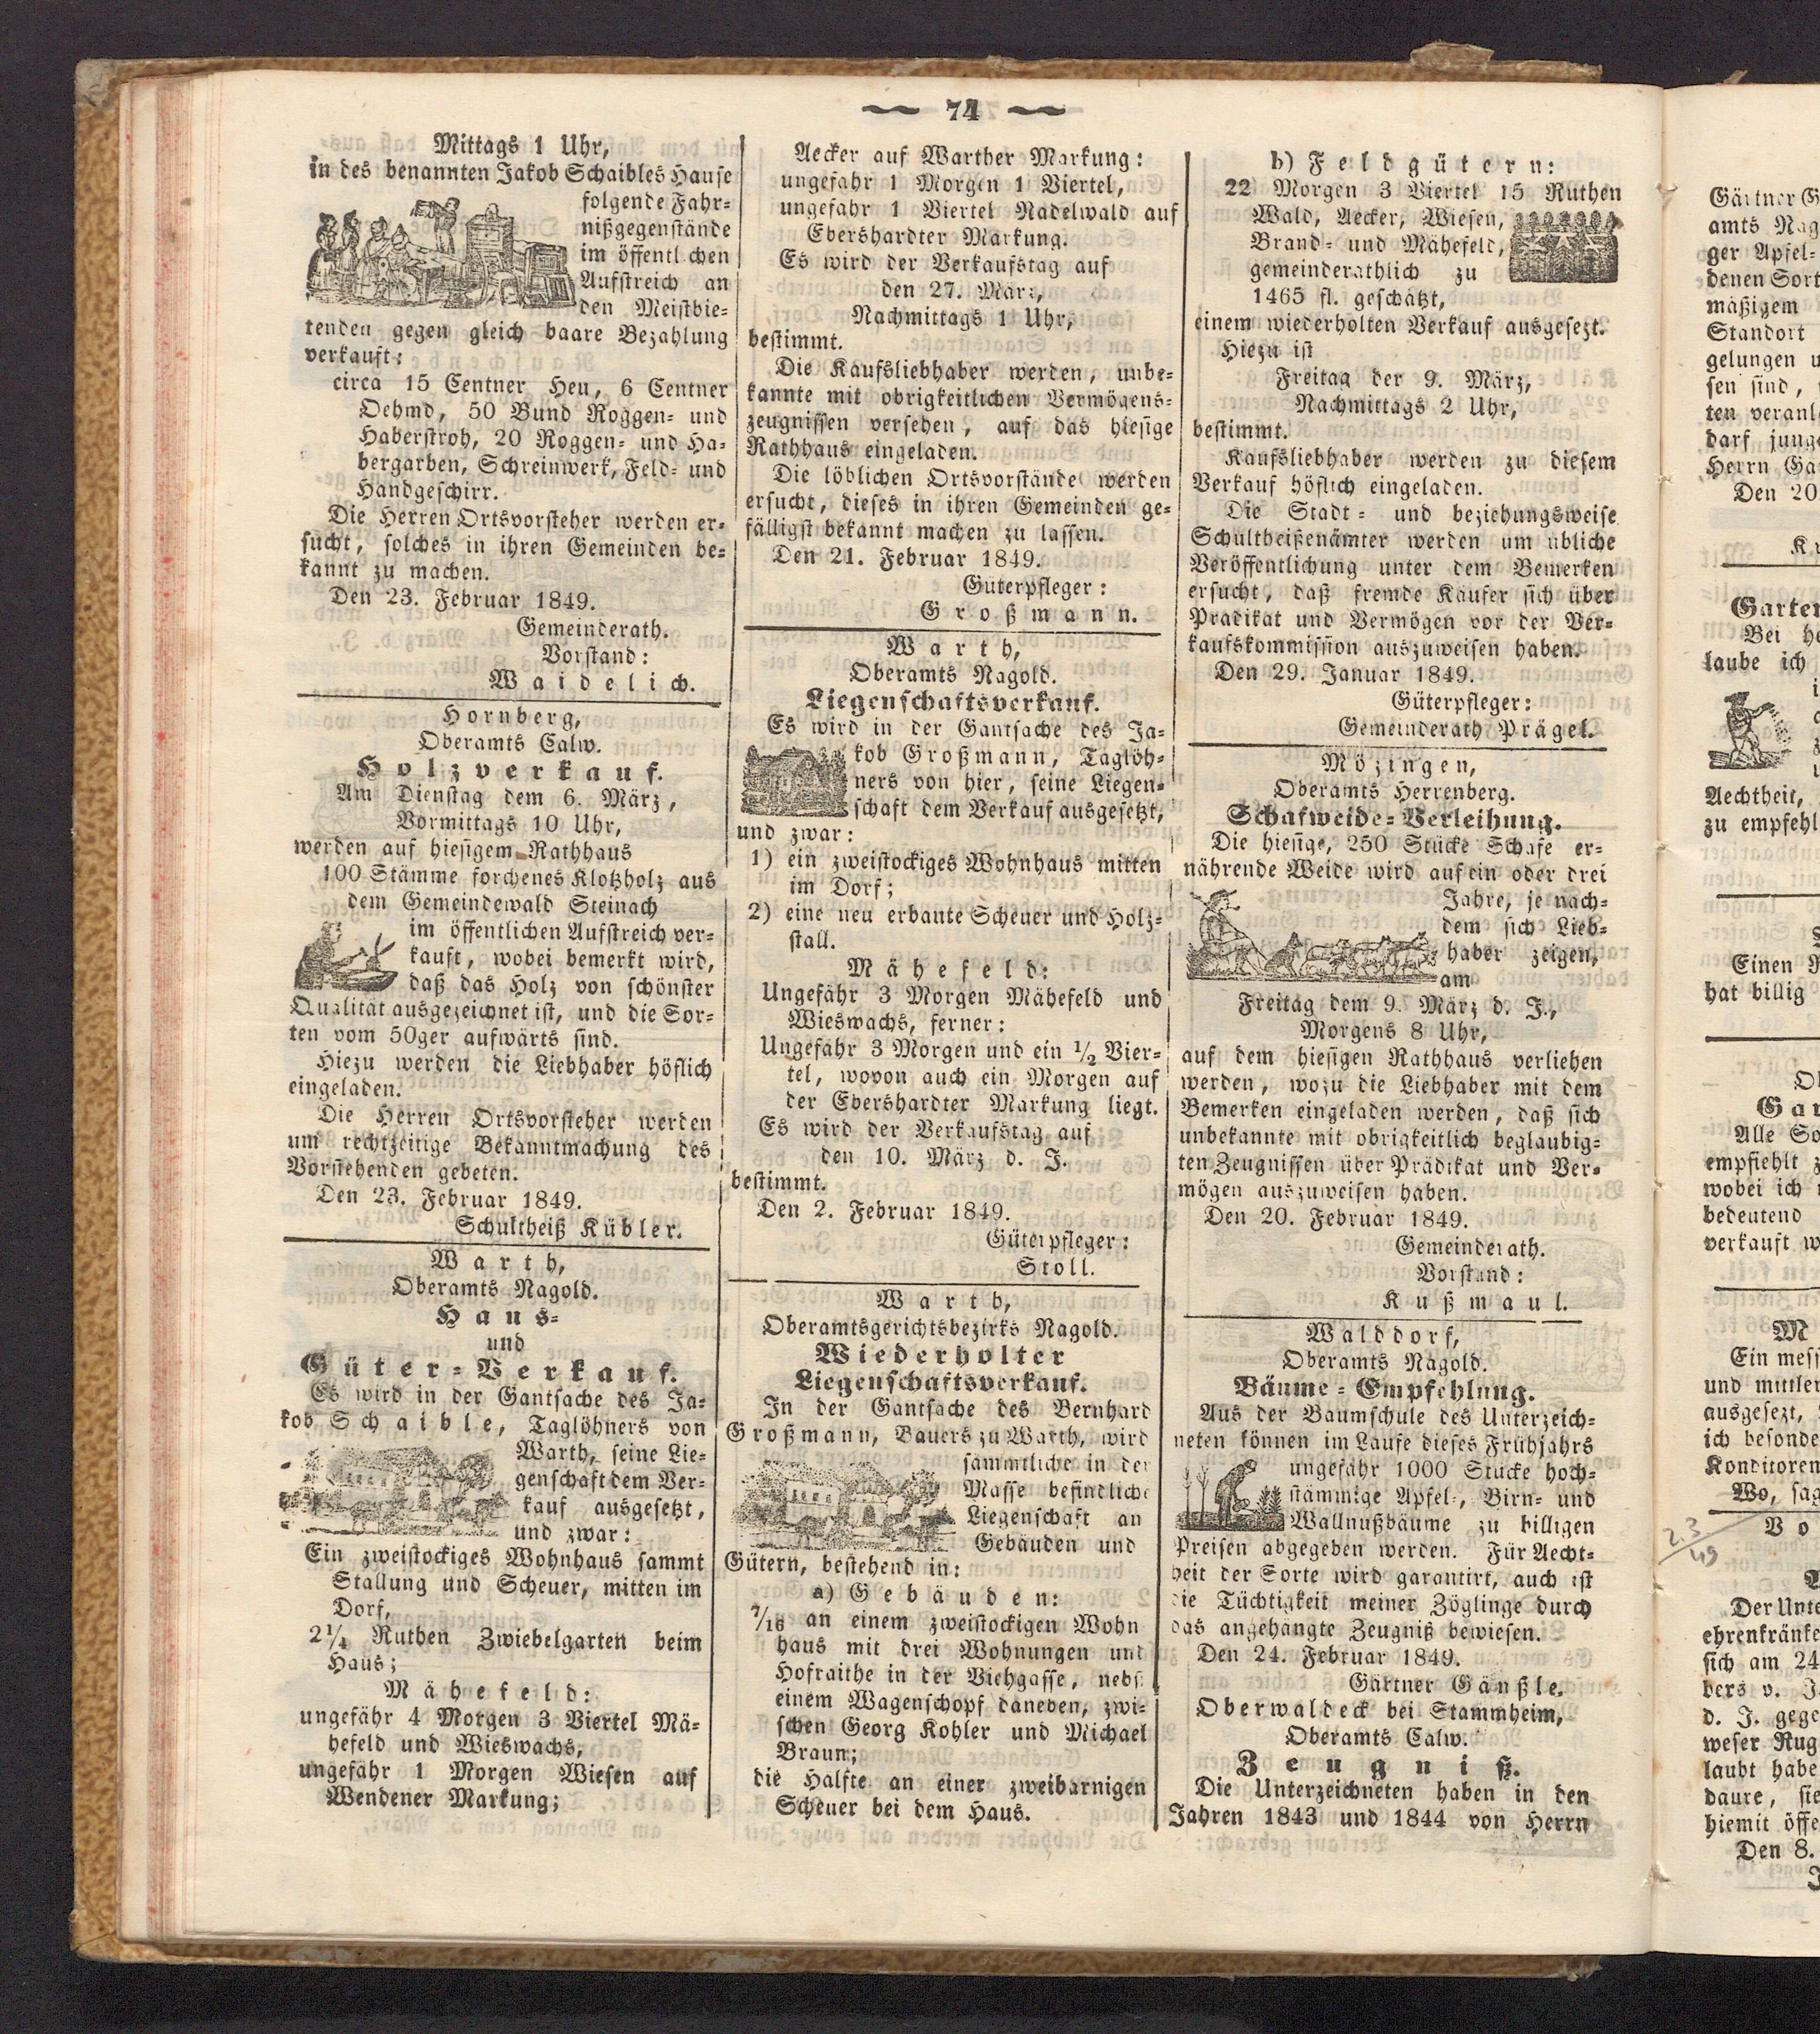 74
Mittags 1 Uhr,
in des benannten Jakob Schaibles Hause
folgende Fahr-
nißgegenstände
im öffentlichen
Aufstreich an
den Meistbie-
tenden gegen gleich baare Bezahlung
verkauft:
circa 15 Centner Heu, 6 Centner
Oehmd, 50 Bund Roggen- und
Haberstroh, 20 Roggen- und Ha-
bergarben, Schreinwerk, Feld- und
Handgeschirr.
Die Herren Ortsvorsteher werden er-
sucht, solches in ihren Gemeinden be-
kannt zu machen.
Den 23. Februar 1849.
Gemeinderath.
Vorstand:
Waidelich.
Hornberg,
Oberamts Calw.
Holzverkauf.
Am Dienstag dem 6. März,
Vormittags 10 Uhr,
werden auf hiesigem Rathhaus
100 Stämme forchenes Klotzholz aus
dem Gemeindewald Steinach
im öffentlichen Aufstreich ver-
kauft, wobei bemerkt wird,
daß das Holz von schönster
Qualität ausgezeichnet ist, und die Sor-
ten vom 50ger aufwärts sind.
Hiezu werden die Liebhaber höflich
eingeladen.
Die Herren Ortsvorsteher werden
um rechtzeitige Bekanntmachung des
Vorstehenden gebeten.
Den 23. Februar 1849.
Schultheiß Kübler.
Warth,
Oberamts Nagold.
Haus-
und
Güter-Verkauf.
Es wird in der Gantsache des Ja-
kob Schaible, Taglöhners von
Warth, seine Lie-
genschaft dem Ver-
kauf ausgesetzt,
und zwar:
Ein zweistockiges Wohnhaus sammt
Stallung und Scheuer, mitten im
Dorf,
2¼ Ruthen Zwiebelgarten beim
Haus;
Mähefeld:
ungefähr 4 Morgen 3 Viertel Mä-
hefeld und Wieswachs,
ungefähr 1 Morgen Wiesen auf
Wendener Markung;
Aecker auf Warther Markung:
ungefähr 1 Morgen 1 Viertel,
ungefähr 1 Viertel Nadelwald auf
Ebershardter Markung.
Es wird der Verkaufstag auf
den 27. März,
Nachmittags 1 Uhr,
bestimmt.
Die Kaufsliebhaber werden, unbe-
kannte mit obrigkeitlichen Vermögens-
zeugnissen versehen, auf das hiesige
Rathhaus eingeladen.
Die löblichen Ortsvorstände werden
ersucht, dieses in ihren Gemeinden ge-
fälligst bekannt machen zu lassen.
Den 21. Februar 1849.
Güterpfleger:
Großmann.
Warth,
Oberamts Nagold.
Liegenschaftsverkauf.
Es wird in der Gantsache des Ja-
kob Großmann, Taglöh-
ners von hier, seine Liegen-
schaft dem Verkauf ausgesetzt,
und zwar:
1) ein zweistockiges Wohnhaus mitten
im Dorf;
2) eine neu erbaute Scheuer und Holz-
stall.
Mähefeld:
Ungefähr 3 Morgen Mähefeld und
Wieswachs, ferner:
Ungefähr 3 Morgen und ein ½ Vier-
tel, wovon auch ein Morgen auf
der Ebershardter Markung liegt.
Es wird der Verkaufstag auf
den 10. März d. J.
bestimmt.
Den 2. Februar 1849.
Güterpfleger:
Stoll.
Warth,
Oberamtsgerichtsbezirks Nagold.
Wiederholter
Liegenschaftsverkauf.
In der Gantsache des Bernhard
Großmann, Bauers zu Warth, wird
sämmtliche in der
Masse befindliche
Liegenschaft an
Gebäuden und
Gütern, bestehend in:
a) Gebäuden:
7/16 an einem zweistockigen Wohn
haus mit drei Wohnungen und
Hofraithe in der Viehgasse, nebst
einem Wagenschopf daneben, zwi-
schen Georg Kohler und Michael
Braun;
die Hälfte an einer zweibarnigen
Scheuer bei dem Haus.
b) Feldgütern:
22 Morgen 3 Viertel 15 Ruthen
Wald, Aecker, Wiesen,
Brand- und Mähefeld,
gemeinderäthlich zu
1465 fl. geschätzt,
einem wiederholten Verkauf ausgesezt.
Hiezu ist
Freitag der 9. März,
Nachmittags 2 Uhr,
bestimmt.
Kaufsliebhaber werden zu diesem
Verkauf höflich eingeladen.
Die Stadt- und beziehungsweise
Schultheißenämter werden um übliche
Veröffentlichung unter dem Bemerken
ersucht, daß fremde Käufer sich über
Prädikat und Vermögen vor der Ver-
kaufskommission auszuweisen haben.
Den 29. Januar 1849.
Güterpfleger:
Gemeinderath Prägel.
Mözingen,
Oberamts Herrenberg.
Schafweide-Verleihung.
Die hiesige, 250 Stücke Schafe er-
nährende Weide wird auf ein oder drei
Jahre, je nach-
dem sich Lieb-
haber zeigen,
am
Freitag dem 9. März d. J.,
Morgens 8 Uhr,
auf dem hiesigen Rathhaus verliehen
werden, wozu die Liebhaber mit dem
Bemerken eingeladen werden, daß sich
unbekannte mit obrigkeitlich beglaubig-
ten Zeugnissen über Prädikat und Ver-
mögen auszuweisen haben.
Den 20. Februar 1849.
Gemeinderath.
Vorstand:
Kußmaul.
Walddorf,
Oberamts Nagold.
Bäume-Empfehlung.
Aus der Baumschule des Unterzeich-
neten können im Laufe dieses Frühjahrs
ungefähr 1000 Stücke hoch-
stämmige Apfel-, Birn- und
Wallnußbäume zu billigen
Preisen abgegeben werden. Für Aecht-
heit der Sorte wird garantirt, auch ist
die Tüchtigkeit meiner Zöglinge durch
das angehängte Zeugniß bewiesen.
Den 24. Februar 1849.
Gärtner Gänßle.
Oberwaldeck bei Stammheim,
Oberamts Calw.
Zeugniß.
Die Unterzeichneten haben in den
Jahren 1843 und 1844 von Herrn
Gärtner G
amts Nag
ger Apfel-
denen Sort
mäßigem
Standort
gelungen u
sen sind,
ten veranl
darf junge
Herrn Gä
Den 20
Garten
Bei he
laube ich
Aechtheit,
zu empfehl
Einen
hat billig
Alle So
empfiehlt z
wobei ich
bedeutend
verkauft w
M
Ein mess
und mittler
ausgesezt,
ich besonde
Konditoren
Wo, sag
23/49
Vo
Der Unte
ehrenkränke
sich am 24
bers v. J.
d. J. gege
weser Rug
laubt habe
daure, sie
hiemit öffe
Den 8.